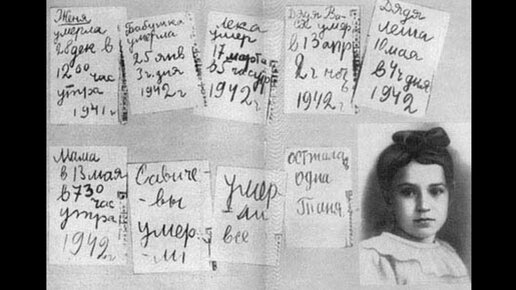 Женя
умерла
28 дек в
12 00 час
утра
1941 г
Бабушка
умерла
25 янв
3 ч дня
1942 г
Лека
умер
17 марта
в 5 час утр
1942 г
Дядя Ва
ся умер
в 13 апр
2 ч ноч
в
1942 г
Дядя
Леша
10 мая
в 4 ч дня
1942
Мама
в 13 мая
в 7 30
час
утра
1942 г
Савиче-
-вы
умер-
-ли
умер
ли
все
остала
одна
Таня